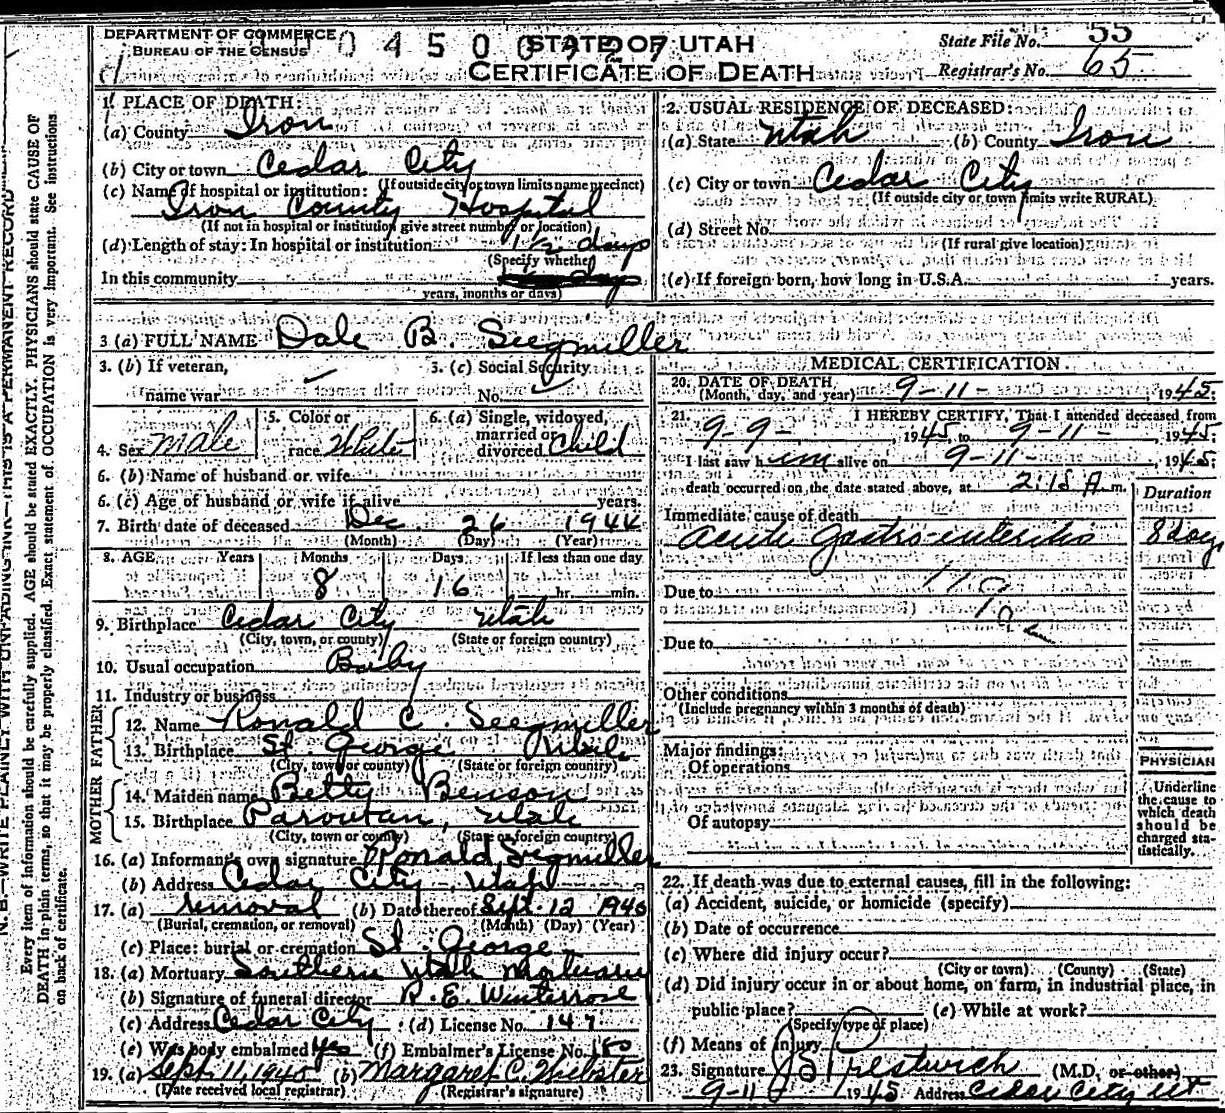 DEPARTMENT OF COMMERCE
BUREAU OF THE CENSUS
STATE OF UTAH
CERTIFICATE OF DEATH
State File No. 55
Registrar's No. 65
1. PLACE OF DEATH:
(a) County Iron
(b) City or town Cedar City
(If outside city or town limits name precinct)
(c) Name of hospital or institution:
Iron County Hospital
(If not in hospital or institution give street number or location)
(d) Length of stay: In hospital or institution 1½ days
(Specify whether
In this community
years, months or days)
2. USUAL RESIDENCE OF DECEASED:
(a) State Utah (b) County Iron
(c) City or town Cedar City
(If outside city or town limits write RURAL)
(d) Street No.
(If rural give location)
(e) If foreign born, how long in U.S.A. years.
3 (a) FULL NAME Dale B. Seegmiller
3. (b) If veteran,
name war
3. (c) Social Security
No.
4. Sex Male
5. Color or
race White
6. (a) Single, widowed,
married or
divorced Child
6. (b) Name of husband or wife
6. (c) Age of husband or wife if alive years.
7. Birth date of deceased Dec. 26 1944
(Month) (Day) (Year)
8. AGE Years Months Days If less than one day
8 16 hr. min.
9. Birthplace Cedar City Utah
(City, town, or county) (State or foreign country)
10. Usual occupation Baby
11. Industry or business
FATHER
12. Name Ronald C. Seegmiller
13. Birthplace St. George Utah
(City, town or county) (State or foreign country)
MOTHER
14. Maiden name Betty Benson
15. Birthplace Parowan, Utah
(City, town or county) (State or foreign country)
16. (a) Informant's own signature Ronald Seegmiller
(b) Address Cedar City, Utah
17. (a) removal (b) Date thereof Sept. 12 1945
(Burial, cremation, or removal) (Month) (Day) (Year)
(c) Place: burial or cremation St. George
18. (a) Mortuary Southern Utah Mortuary
(b) Signature of funeral director R. E. Winterrose
(c) Address Cedar City (d) License No. 147
(e) Was body embalmed yes (f) Embalmer's License No. 180
19. (a) Sept. 11, 1945 (b) Margaret C. Webster
(Date received local registrar) (Registrar's signature)
MEDICAL CERTIFICATION
20. DATE OF DEATH
(Month, day, and year) 9-11-, 1945.
21. I HEREBY CERTIFY, That I attended deceased from
9-9-, 1945, to 9-11-, 1945.
I last saw him alive on 9-11-, 1945;
death occurred on the date stated above, at 2:15 A.m.
Duration
Immediate cause of death
Acute Gastro-enteritis 8 days
Due to
119
Due to
Other conditions
(Include pregnancy within 3 months of death)
Major findings:
Of operations
Of autopsy
PHYSICIAN
Underline
the cause to
which death
should be
charged sta-
tistically.
22. If death was due to external causes, fill in the following:
(a) Accident, suicide, or homicide (specify)
(b) Date of occurrence
(c) Where did injury occur?
(City or town) (County) (State)
(d) Did injury occur in or about home, on farm, in industrial place, in
public place? (e) While at work?
(Specify type of place)
(f) Means of injury
23. Signature J S Prestwich (M.D. or other)
9-11 1945 Address Cedar City Ut
N. B.—WRITE PLAINLY, WITH UNFADING INK—THIS IS A PERMANENT RECORD
Every item of information should be carefully supplied. AGE should be stated EXACTLY. PHYSICIANS should state CAUSE OF
DEATH in plain terms, so that it may be properly classified. Exact statement of OCCUPATION is very important. See instructions
on back of certificate.